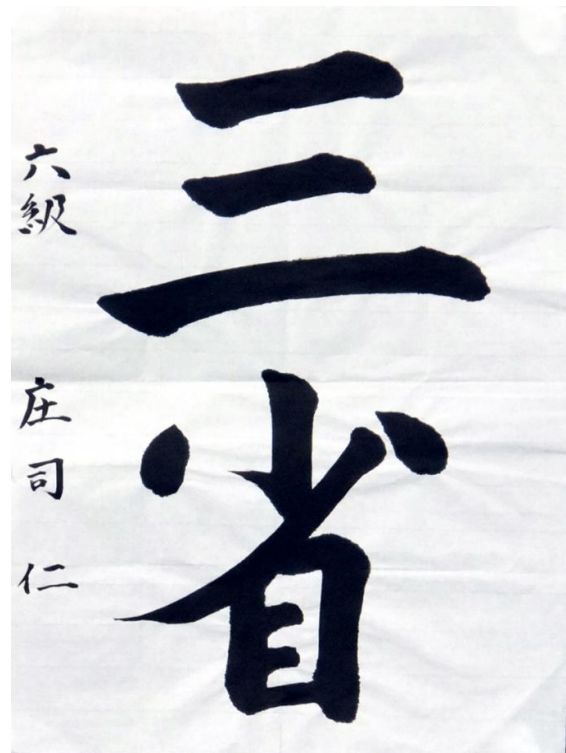 三省
六級 庄司 仁